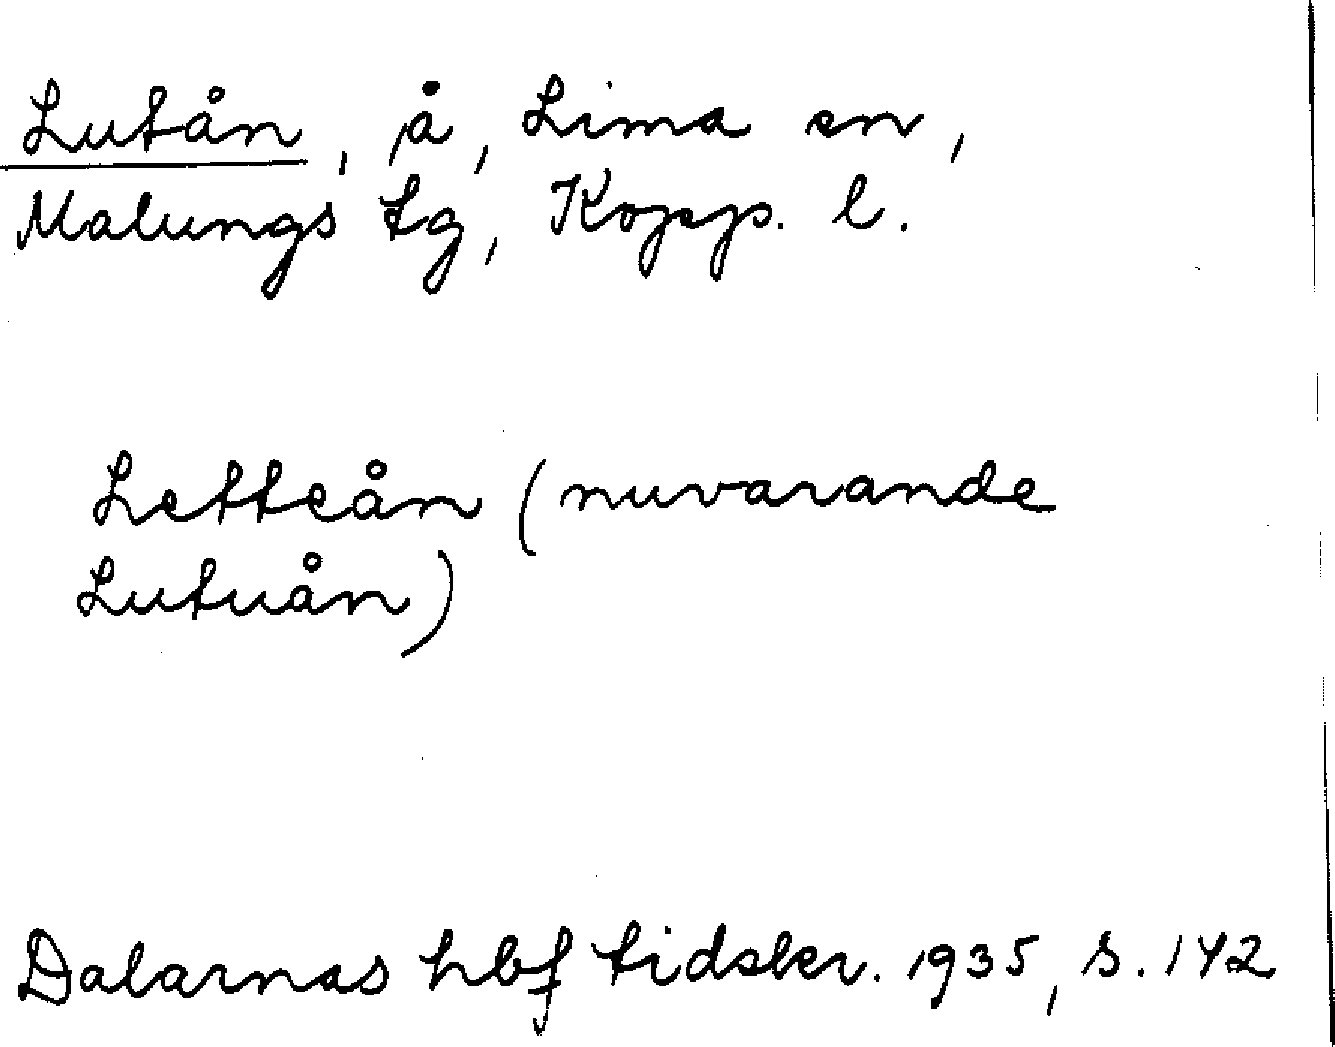 Lutån, å, Lima sn,
Malungs tg, Kopp. l.
Letteån (nuvarande
Lutuån)
Dalarnas hbf tidskr. 1935, s. 142